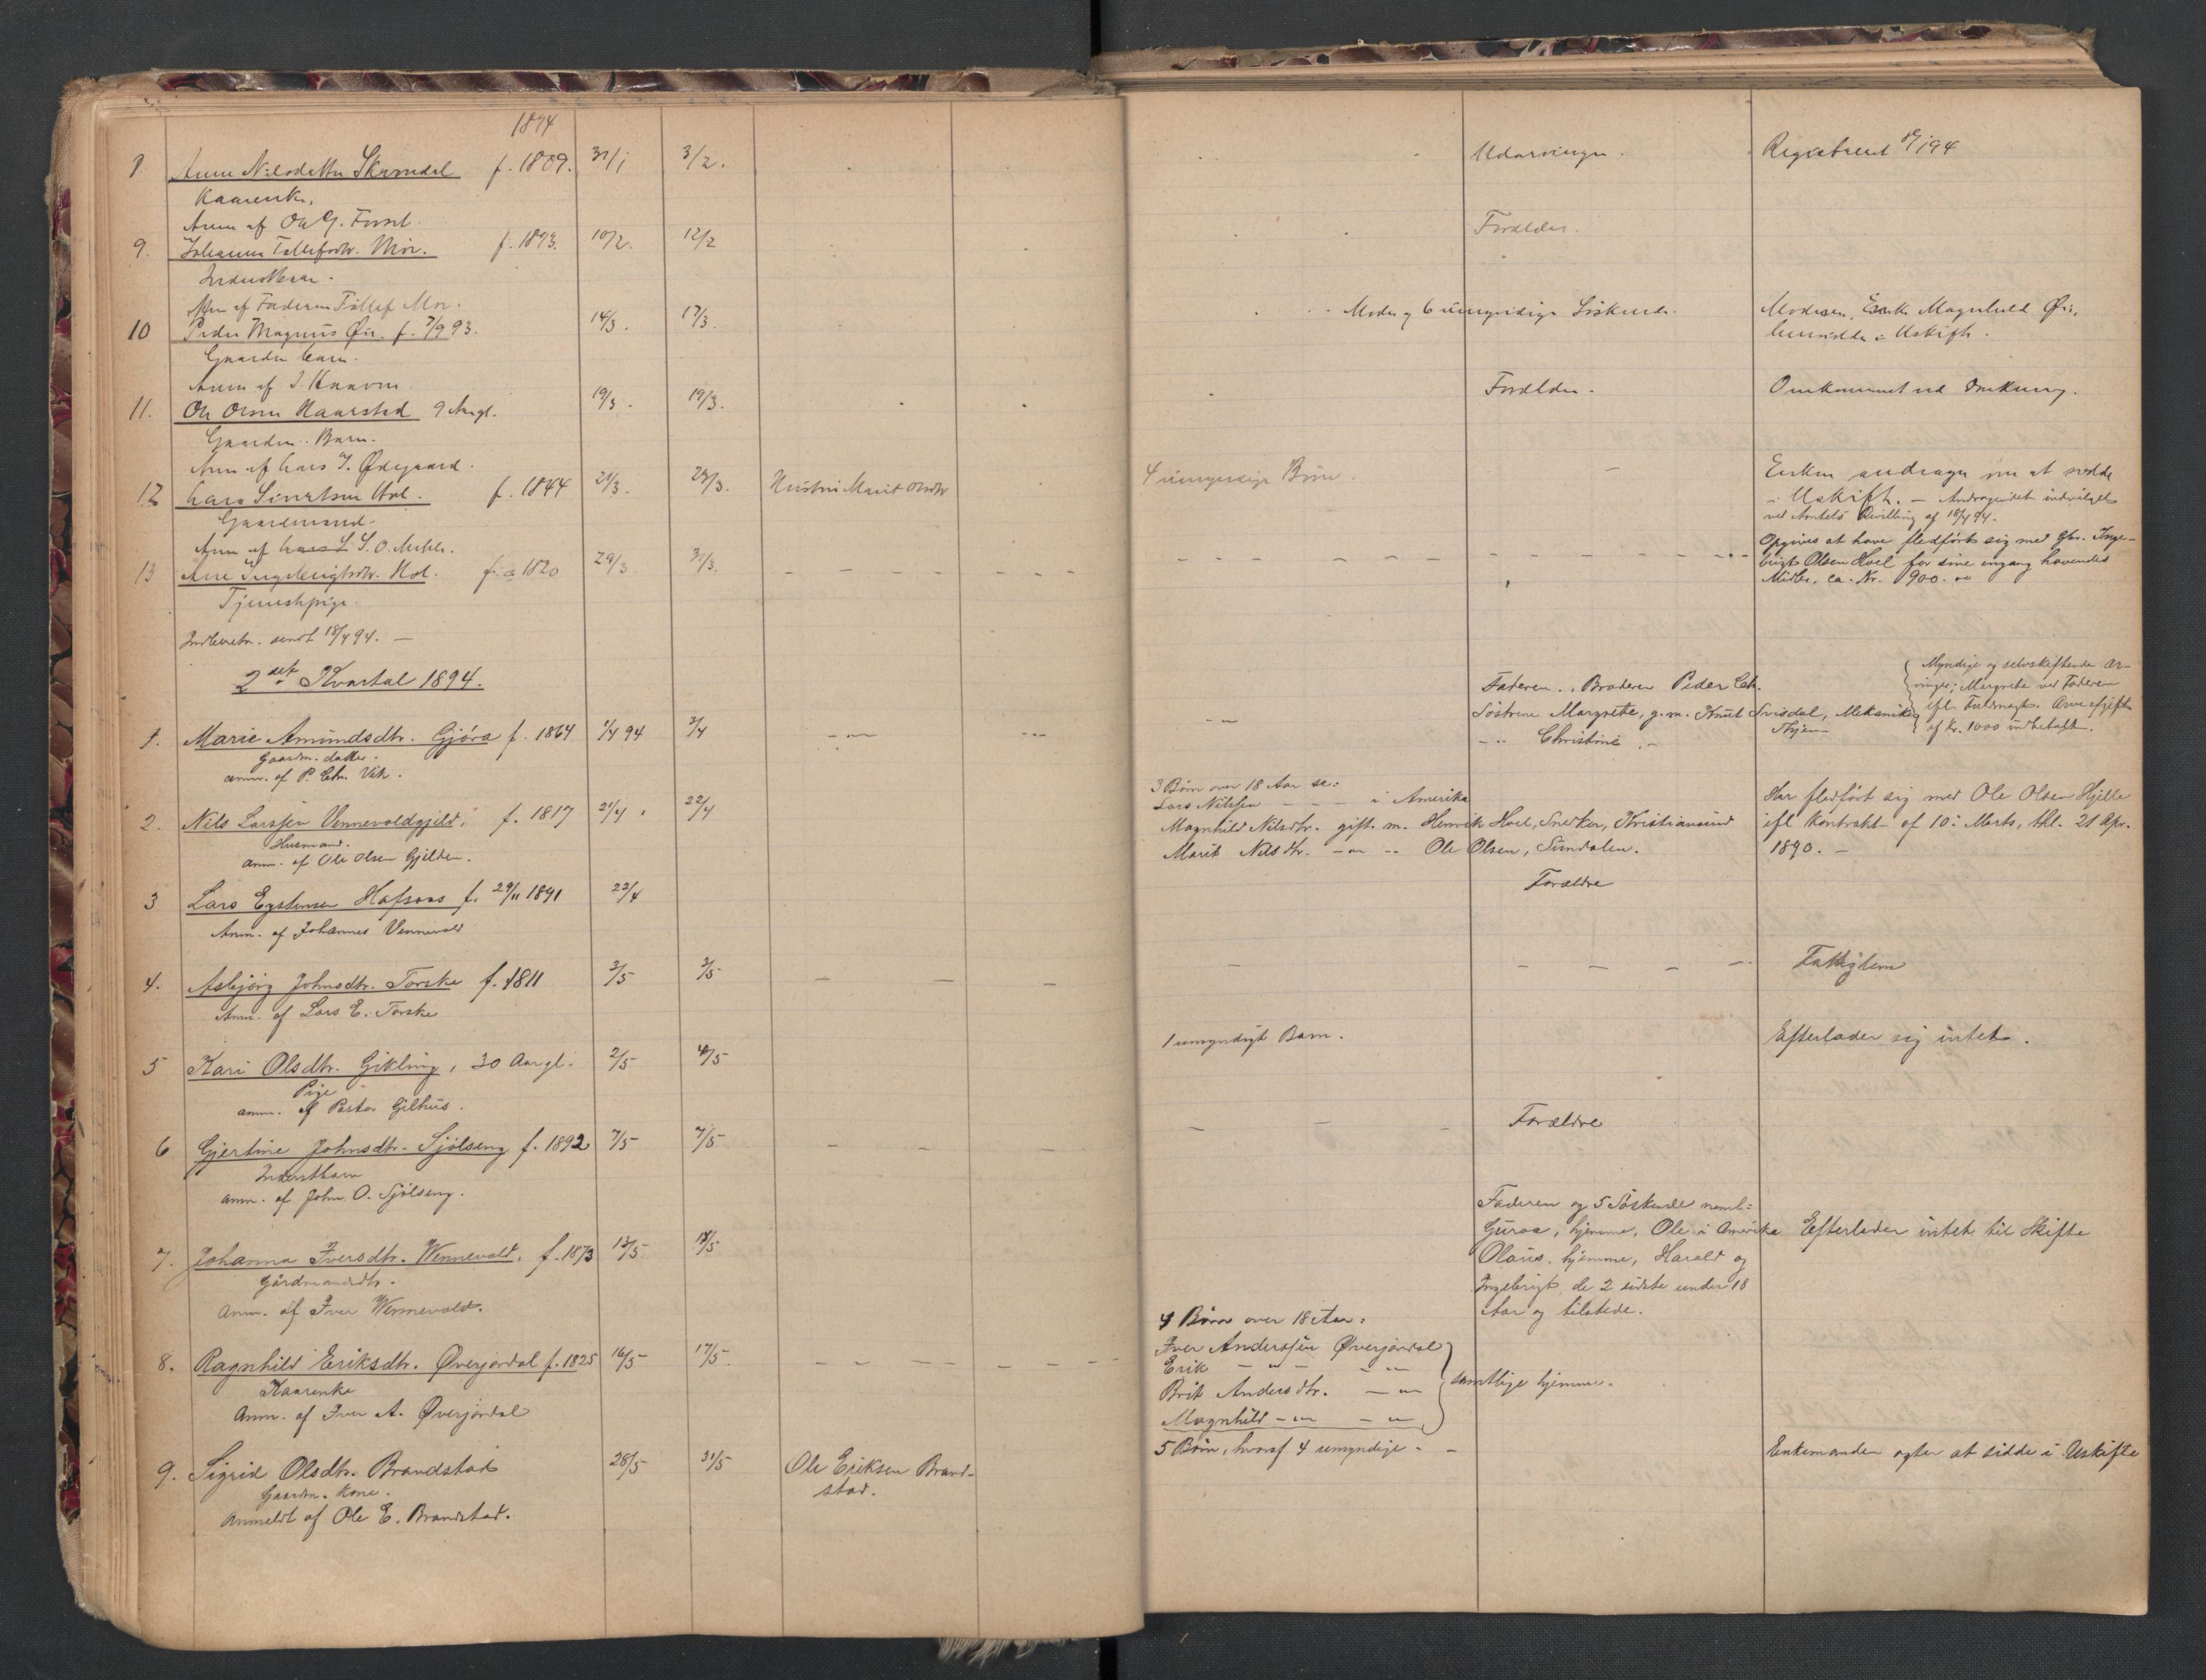 1894
8. Anne Nilsdatter f. 1809. 31/1 3/2. Udarvinger. Registreret
Kaarenke.
Anm af Ole
9. Johanna Tollefsdtr. Mo f. 1893. 10/2. 12/2 Forældre.
Inderstbarn.
Anm af Faderen Tollef Mo.
10 Peder Magnus Øie. f. 7/9 93. 14/3. 17/3. Moder og 6 umyndige Söskende. Moderen, Enke Magnhild Øie,
Gaardm. barn. hensidder i Uskifte.
Anm af
11. Ole Olsen Haarstad 9 Aargl. 19/3. 19/3. Forældre. Omkommet ved
Gaardm. Barn.
Anm af Lars I. Ødegaard.
12 Lars Hol. f. 1844 21/3. 23/3. Hustru Marit Olsdtr 4 umyndige Börn. - Enken andrager om at sidde
Gaardmand. i Uskifte. - Andragendet indvilget
ved Amtets Bevilling af 18/4 94.
Anm af S. O.
13 Ane Ingebrigtsdtr. Hol. f. ca 1820 29/3. 31/3. Opgives at have fledfört sig med Gbr. Inge-
brigt Olsen Hoel for sine iegang havendes
Tjenestepige. Midler, ca. Kr. 900.00
Indberetn. sendt 18/4 94. -
2det Kvartal 1894.
1. Marie Amundsdtr. Gjöra f. 1864 1/4 94 3/4 Faderen., Broderen Peder Chr. Myndige og selvskiftende Ar-
Gaardm. datter. Söstrene Margrethe, g. m. Knut Svisdal, Mekaniker, Thjem vinger; Margrete ved Faderen
anm. af P. Chr. Vik. - " - Christine . - ifl. Fuldmagt. Arveafgift
af Kr. 1000 indbetalt.
2. Nils Larssen Vennevoldgjeld. f. 1817 21/4. 22/4 3 Börn over 18 Aar se: Har fledfört sig med Ole Olsen Hjelle
Husmand. Lars Nilssen - - - i Amerika ifl Kontrakt af 10: Marts, thl. 21 Apr.
anm. af Ole Olsen Gjelden. Magnhild Nilsdtr. gift. m. Henrik Hoel, Snedker, Kristiansund 1890. -
Marit Nilsdtr. - " - Ole Olsen, Sundalen.
3 Lars Eystensen Hafsaas f. 29/11 1891 22/4 Forældre
Anm. af Johannes Vennevold
4. Asbjörg Johnsdtr. Torske f. 1811 3/5 3/5 - - - - - - - - Fattiglem
Anm. af Lars E. Torske
5 Kari Olsdtr. Gikling, 30 Aar gl. 2/5 4/5 1 umyndigt Barn. Efterlader sig intet.
Pige
anm. af Pastor Gilhus.
6 Gjertine Johnsdtr. Sjölseng f. 1892 7/5 7/5 - - - - - - Forældre
Inderstbarn
anm. af John O. Sjölseng.
7. Johanna Iversdtr. Wennevold. f. 1873 13/5 Faderen og 5 Söskende neml:
Gårdmandsdtr. Guroa, hjemme, Ole i Amerika Efterlader intet til Skifte
Anm. af Iver Wennevold. Olaus. hjemme, Harald og
Ingebrigt, de 2 sidste under 18
Aar og tilstede.
8. Ragnhild Eriksdtr. Øverjordal f. 1825 16/5 17/5 4 Börn over 18 Aar:
Kaarenke Iver Anderssen Øverjordal
Anm. af Iver A. Øverjordal Erik - " - - " -
Brit Andersdtr. - " - samtlige hjemme.
Magnhild - " - - " -
9. Sigrid Olsdtr. Brandstad 28/5 31/5 Ole Eriksen Brand-
stad. 5 Börn, hvoraf 4 umyndige. - Enkemanden agter at sidde i Uskifte
Gaardm. Kone.
Anmeldt af Ole E. Brandstad.